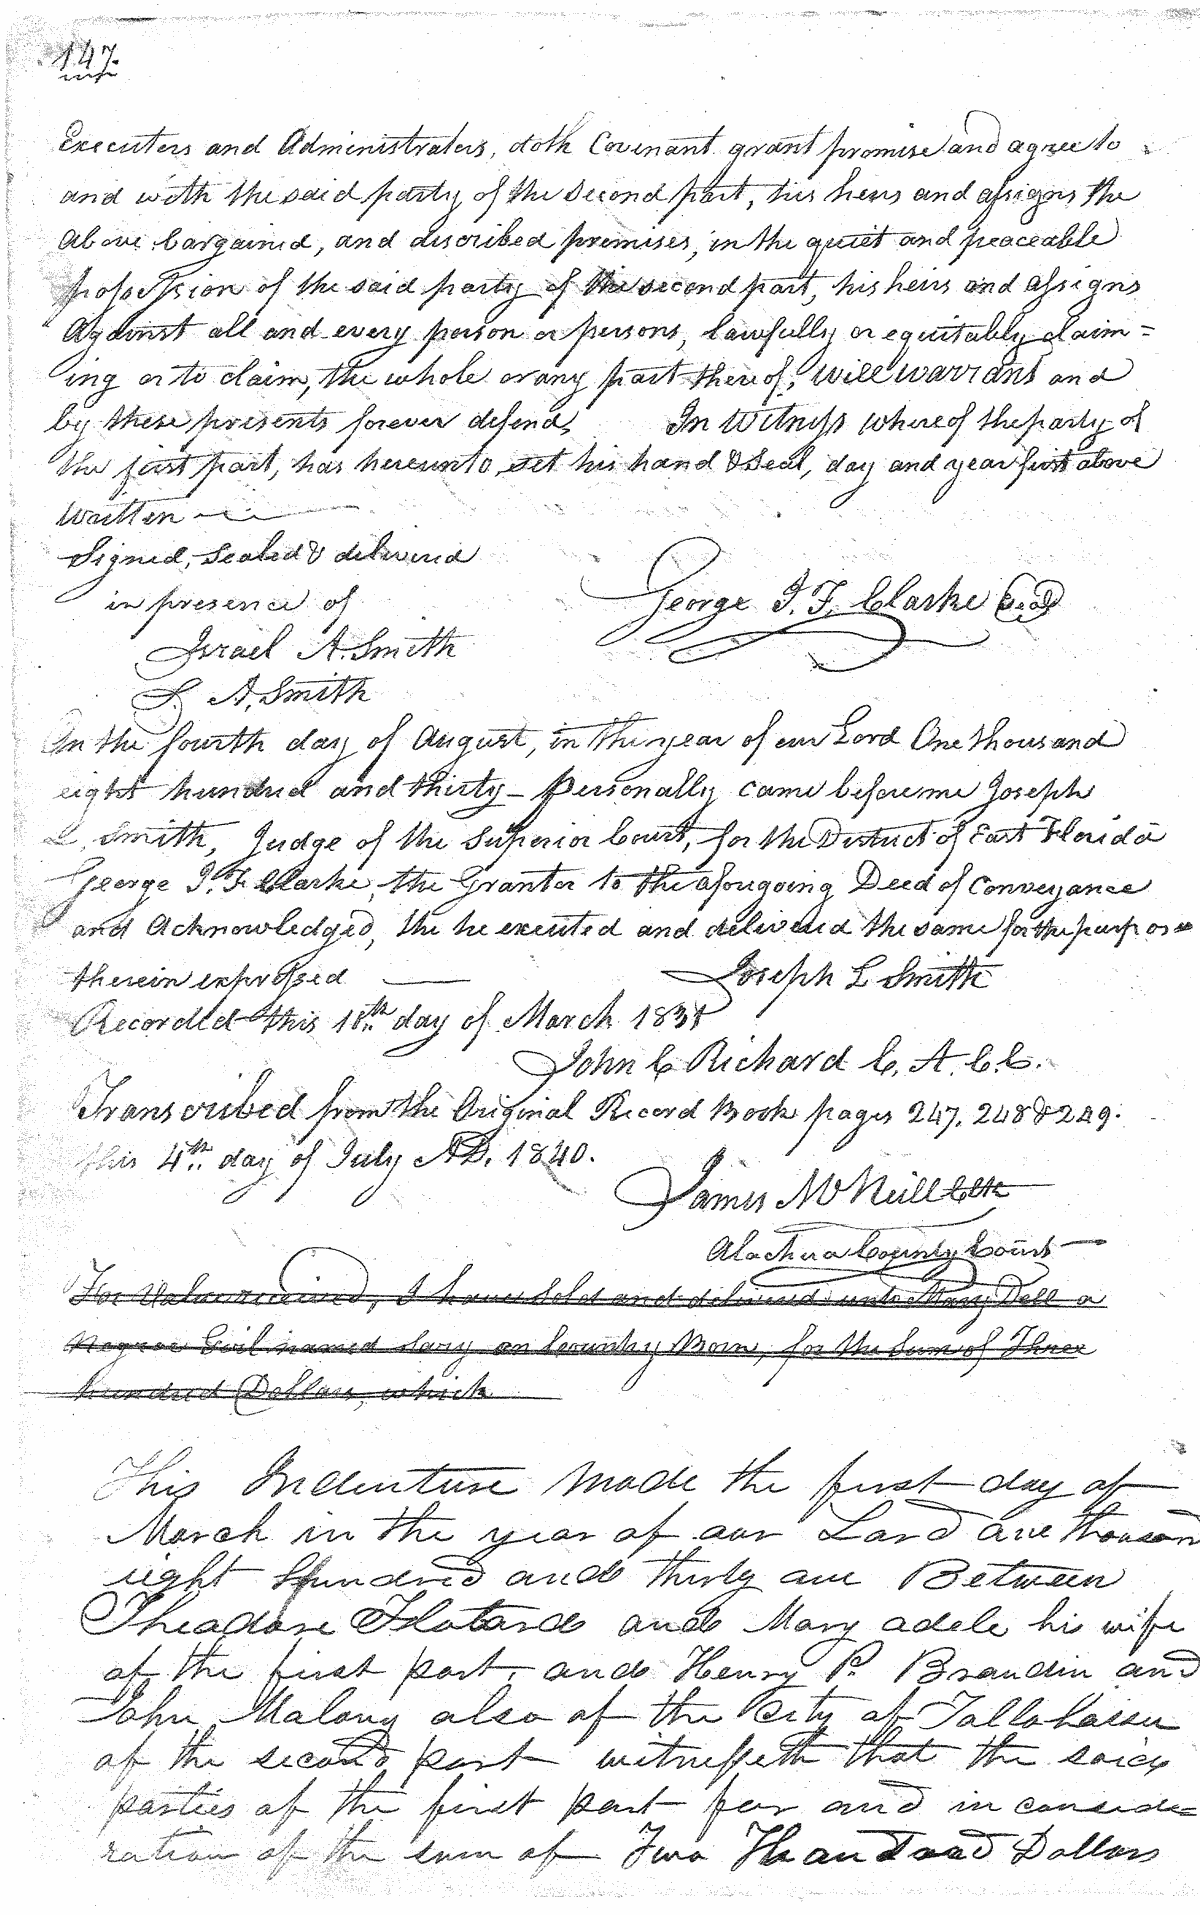 147.
Executers and Administraters, doth Covenant grant promise and agree to
and with the said party of the second part, his heirs and assigns the
above bargained, and discribed premises, in the quiet and peaceable
possession of the said party of the second part, his heirs and assigns
against all and every person or persons, lawfully or equitably claim=
ing or to claim, the whole or any part thereof, will warrant and
by these presents forever defend, In Witness whereof the party of
the first part, has hereunto set his hand & Seal, day and year first above
Written
Signed, Sealed & delivered
in presence of
George J. F. Clarke Seal
Israel A. Smith
A. Smith
In the fourth day of August, in the year of our Lord One thousand
eight hundred and thirty - Personally came before me Joseph
L. Smith, Judge of the Superior Court, for the District of East Florida
George J. F. Clarke, the Grantor to the aforegoing Deed of Conveyance
and Acknowledged, the he executed and delivered the same for the purpose
therein expressed
Joseph L Smith
Recorded this 18th day of March 1831
John C Richard C. A. C. C.
Transcribed from the Original Record Book pages 247, 248 & 249.
this 4th day of July AD. 1840.
James McNeill Clk
Alachua County Court
For Value received, I have Sold and delivered unto Mary Dell a
Negroe Girl named Country Born, for the Sum of Three
hundred Dollars, which
This Indenture made the first day of
March in the year of our Lord one thousand
eight Hundred and thirty one Between
Theadore Flotard and Mary adele his wife
of the first part, and Henry P. Braudin and
John Malony also of the City of Tallahassee
of the second part witnesseth that the said
parties of the first part for and in conside=
ration of the sum of Two Thousand Dollars